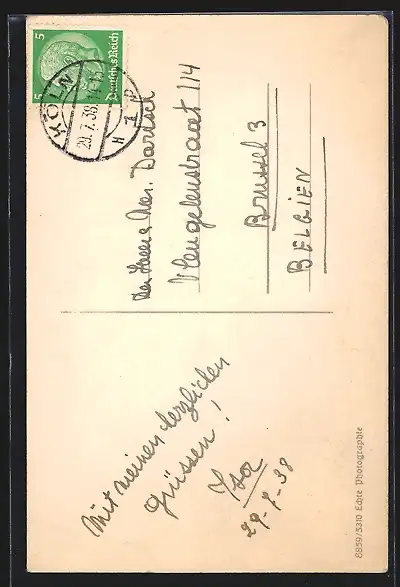 5
5
Deutsches Reich
KÖLN
29.7.38
Mit meinen herzlichen
Grüssen!
29-7-38
Mr.
Vleugelenstraat 114
Brussel 3
BELGIEN
6859/5310 Echte Photographie